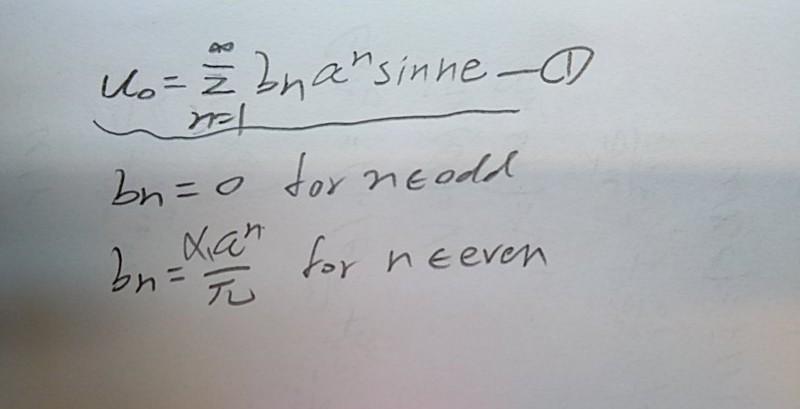 u₀ = ∞Σn=1 bₙ aⁿ sin ne — ①
bₙ = 0 for n ∈ odd
bₙ = α₁aⁿ/π for n ∈ even